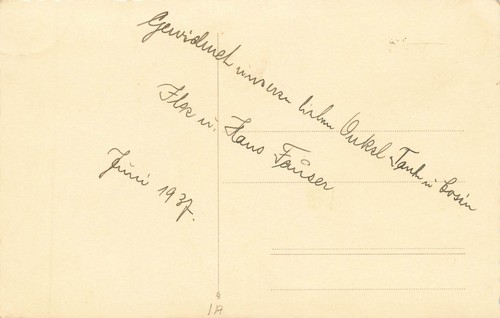 Gewidmet unseren lieben Onkel Tante u Cosin
Ilse u. Hans Fauser
Juni 1937.
1A